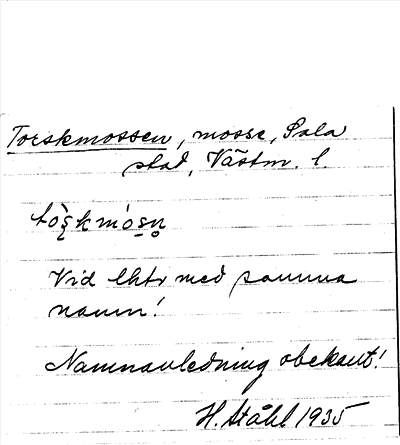 Torskmossen, mosse, Sala
stad, Västm. l.
tòʂkmósn̥
Vid lht med samma
namn!
Namnavledning obekant!
H. Ståhl 1935